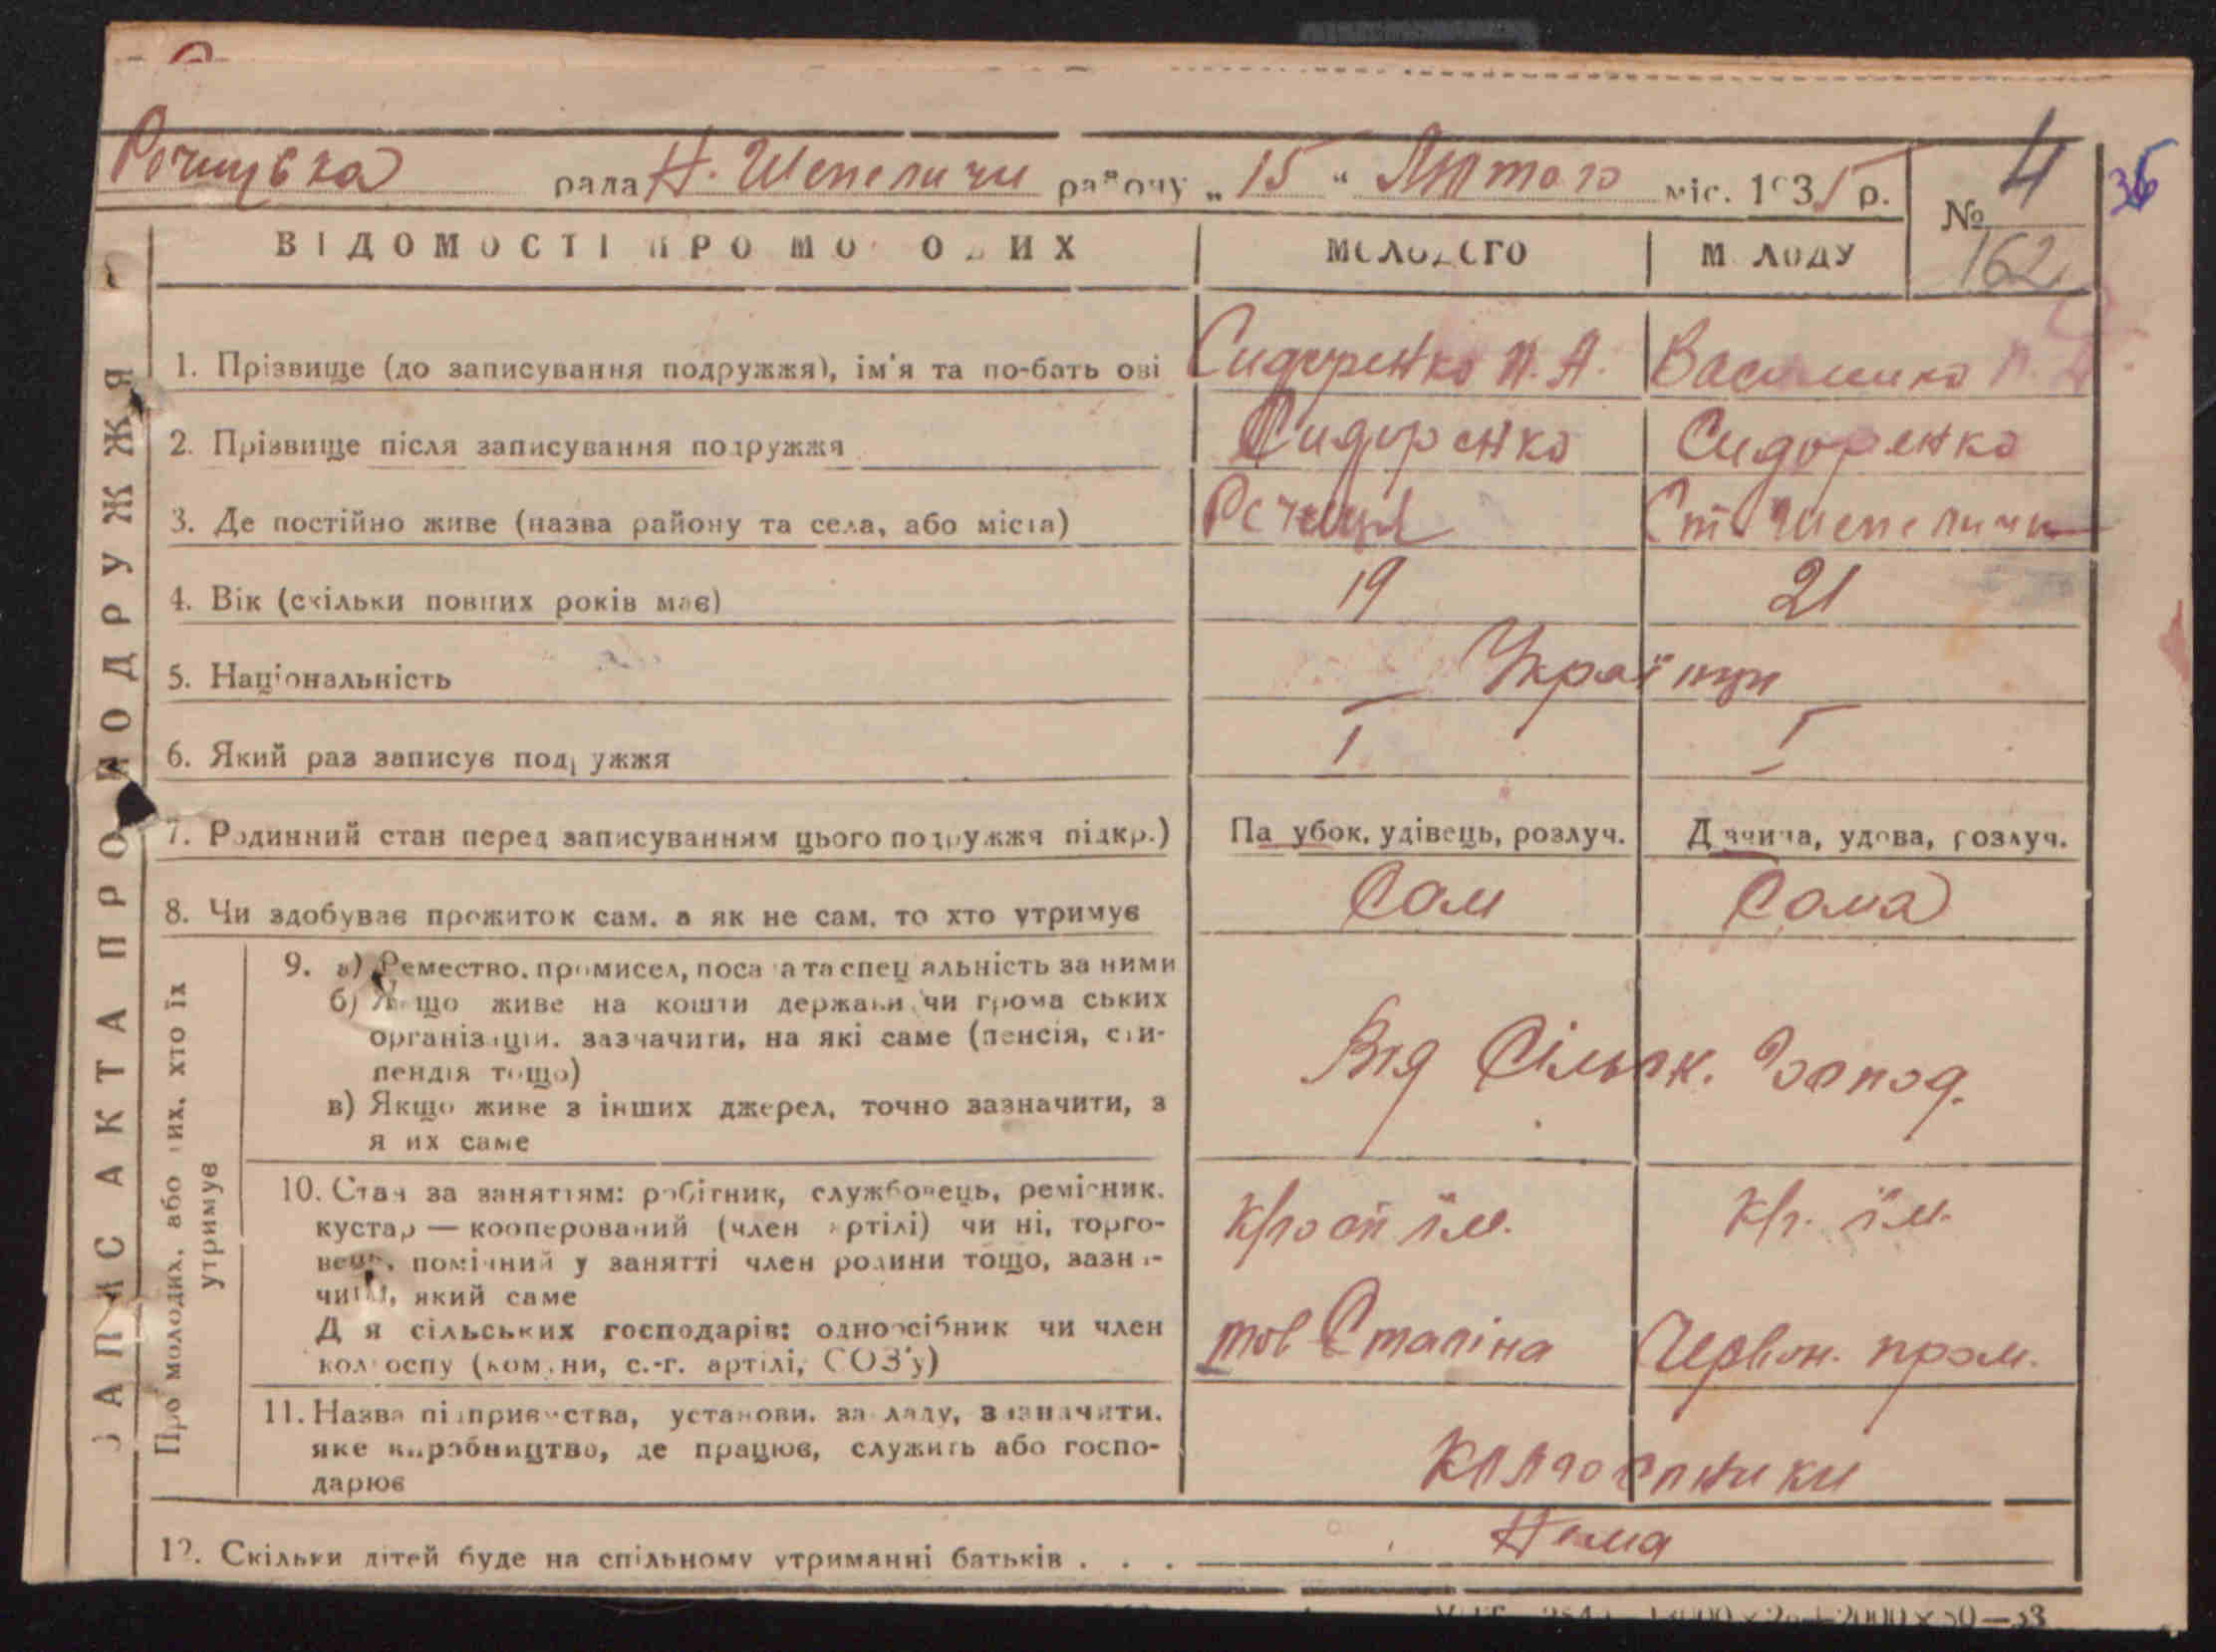 Речицька рада Н. Шепеличи району „ 15 “ Лютого міс. 1935 р.
№ 4
36
162
ВІДОМОСТІ ПРО МОЛОДИХ
МОЛОДОГО
МОЛОДУ
ЗАПИС АКТА ПРО ПОДРУЖЖЯ
1. Прізвище (до записування подружжя), ім'я та по-батькові
Сидоренко П. А.
2. Прізвище після записування подружжя
Сидоренко
Сидоренко
3. Де постійно живе (назва району та села, або міста)
Речиця
Ст. Шепеличи
4. Вік (скільки повних років має)
19
21
5. Національність
Українци
6. Який раз записує подружжя
I
I
7. Родинний стан перед записуванням цього подружжя підкр.)
Парубок, удівець, розлуч.
Дівчина, удова, розлуч.
8. Чи здобуває прожиток сам, а як не сам, то хто утримує
Сам
Сама
Про молодих, або них, хто їх
утримує
9. а) Ремество, промисел, посада та спеціяльність за ними
б) Якщо живе на кошти держави чи громадських
організацій, зазначити, на які саме (пенсія, сти-
пендія тощо)
в) Якщо живе з інших джерел, точно зазначити, з
яких саме
Від Сільськ. Господ.
10. Стан за заняттям: робітник, службовець, ремісник,
кустар — кооперований (член артілі) чи ні, торго-
вець, помічний у занятті член родини тощо, зазна-
чити, який саме
Для сільських господарів: одноосібник чи член
колгоспу (комуни, с.-г. артілі, СОЗ'у)
їм.
тов Сталіна
Кр. їм.
Червон. пром.
11. Назва підприємства, установи, закладу, зазначити,
яке виробництво, де працює, служить або госпо-
дарює
Колгоспники
12. Скільки дітей буде на спільному утриманні батьків . . .
Нема